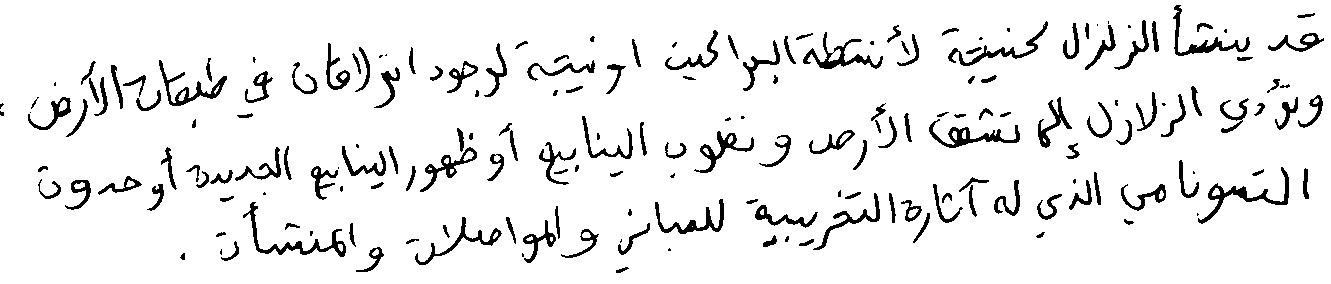 قد ينشأ الزلزال كنتيجة لأنشطة البراكين او نتيجة لوجود انزلاقات في طبقات الأرض ،
وتؤدي الزلازل إلى تشقق الأرض ونضوب الينابيع أو ظهور الينابيع الجديدة أو حدوث
التسونامي الذي له آثاره التخريبية للمباني والمواصلات والمنشأت .